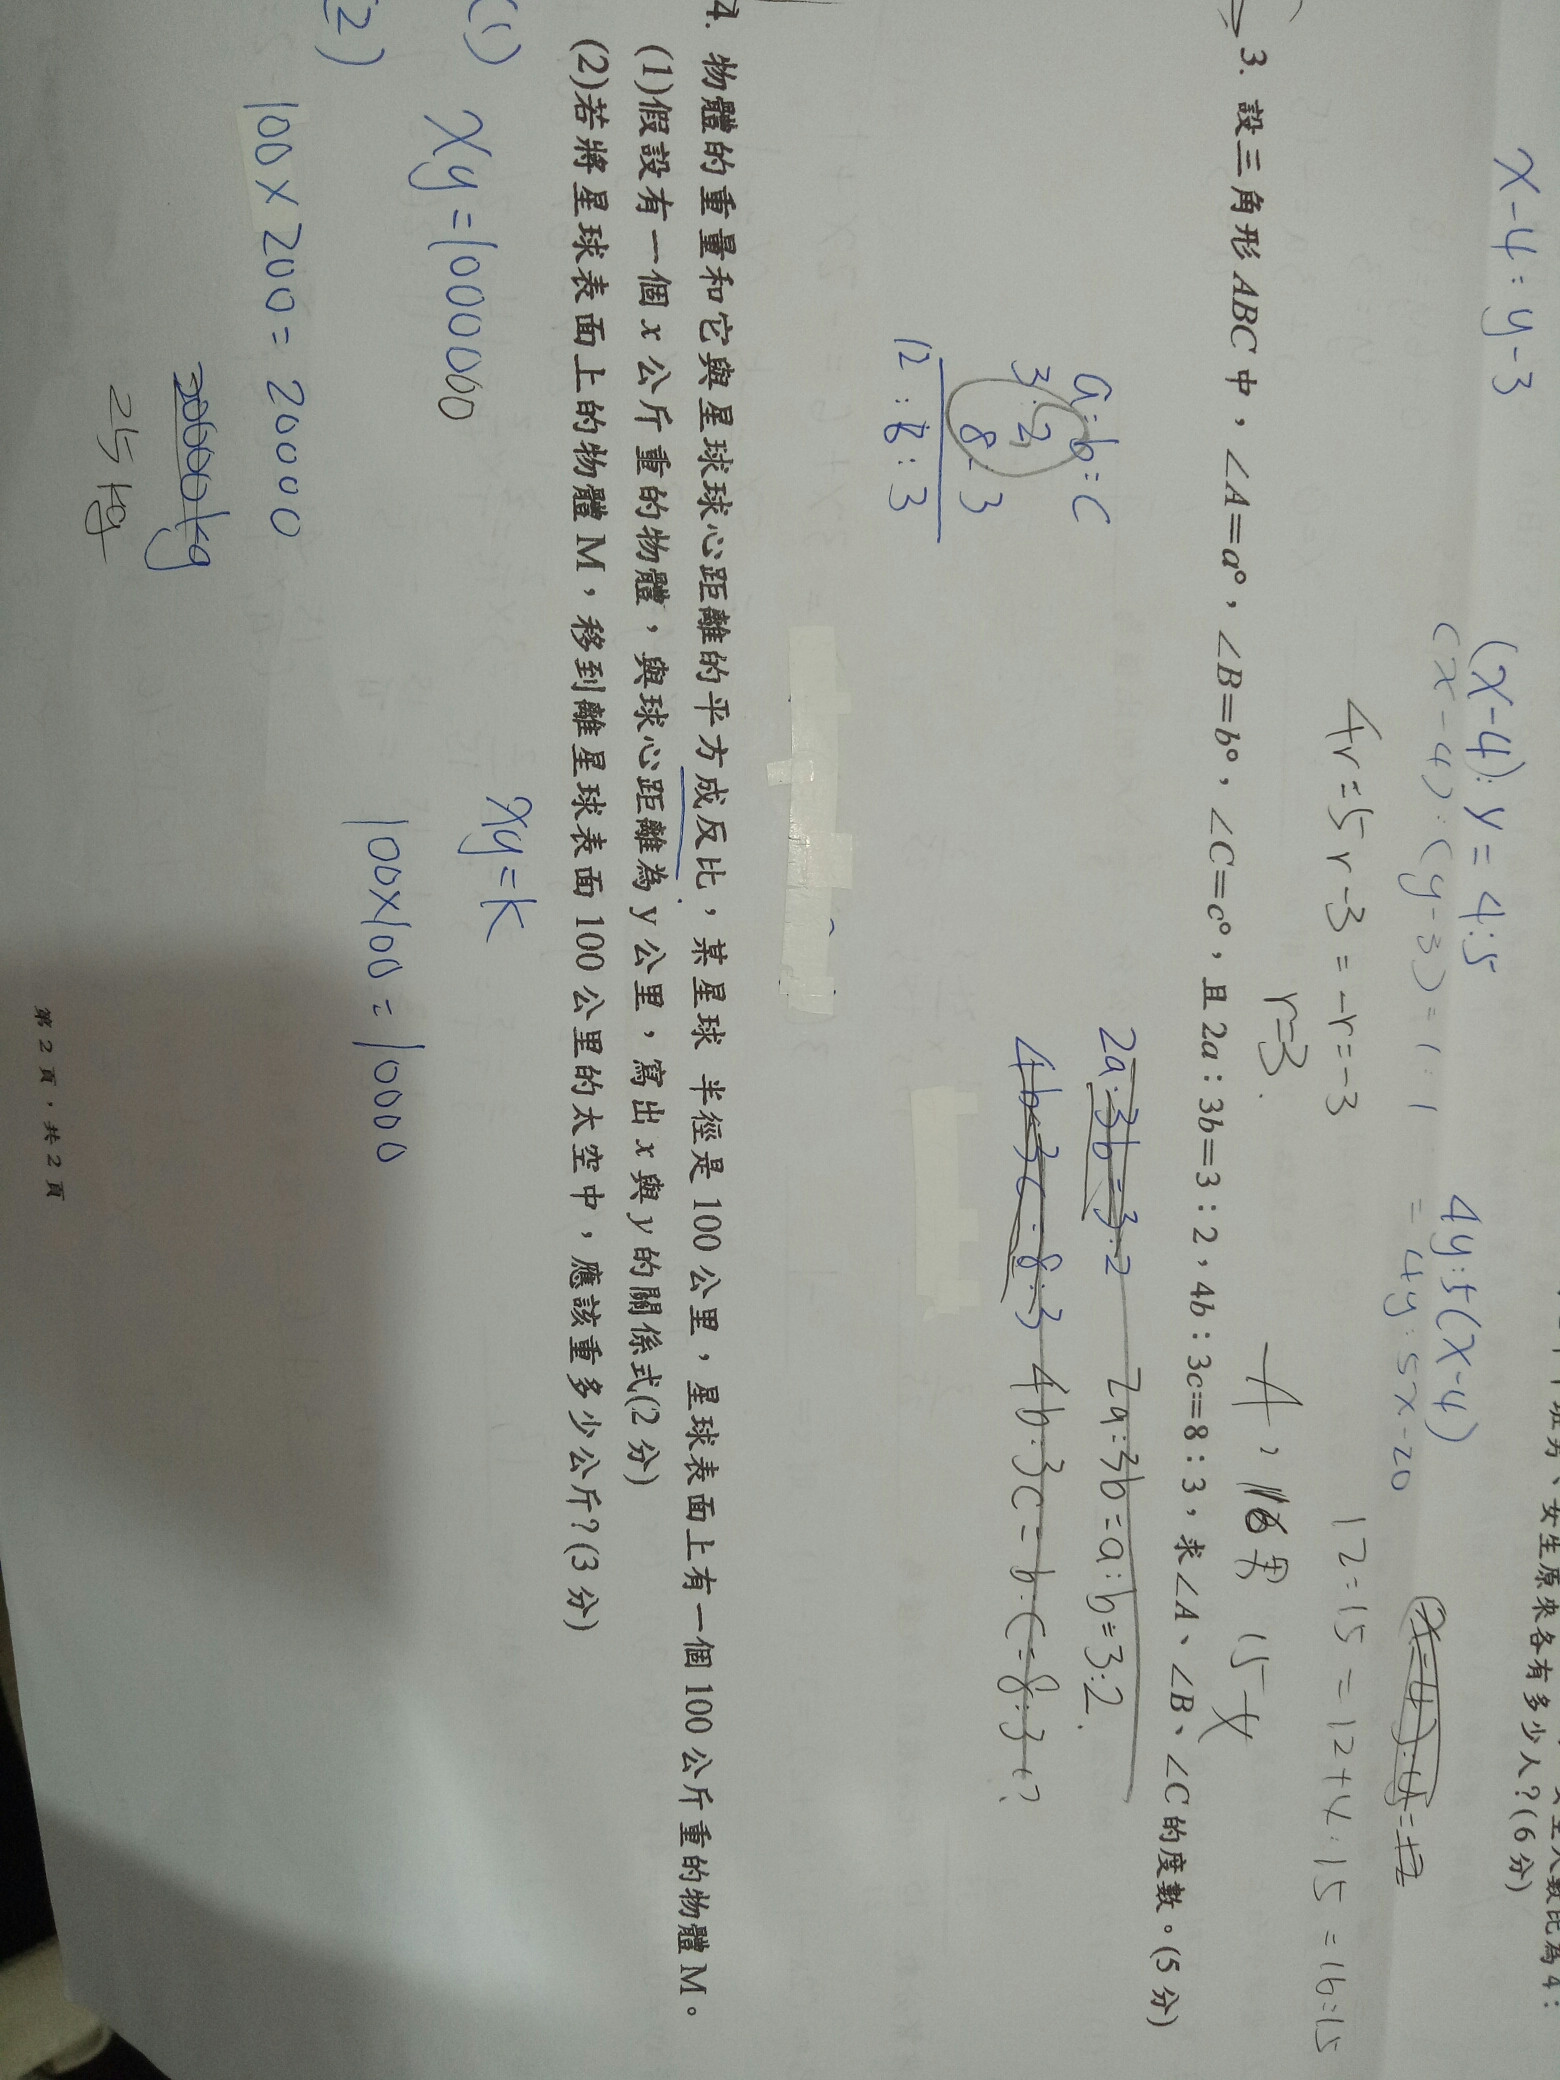 班男、女生原來各有多少人?(6分)
人數比為4:
x-4:y-3
(x-4):y=4:5
4y:5(x-4)
(x-4):(y-3)=1:1
=4y:5x-20
4r=5r-3=-r=-3
12=15=12+4:15=16:15
r=3.
A,16男 15女
3. 設三角形ABC中,∠A=a°,∠B=b°,∠C=c°,且2a:3b=3:2,4b:3c=8:3,求∠A、∠B、∠C的度數。(5分)
a:b:c
3:2
8:3
12:8:3
2a:3b=3:2
2a:3b=a:b=3:2.
4b:3c=8:3
4b:3c=b:c=8:3
4. 物體的重量和它與星球球心距離的平方成反比,某星球 半徑是100公里,星球表面上有一個100公斤重的物體M。
(1)假設有一個x公斤重的物體,與球心距離為y公里,寫出x與y的關係式(2分)
(2)若將星球表面上的物體M,移到離星球表面100公里的太空中,應該重多少公斤?(3分)
(1) xy=1000000
xy=k
(2) 100×200=20000
100×100=10000
20000kg
25kg
第2頁,共2頁